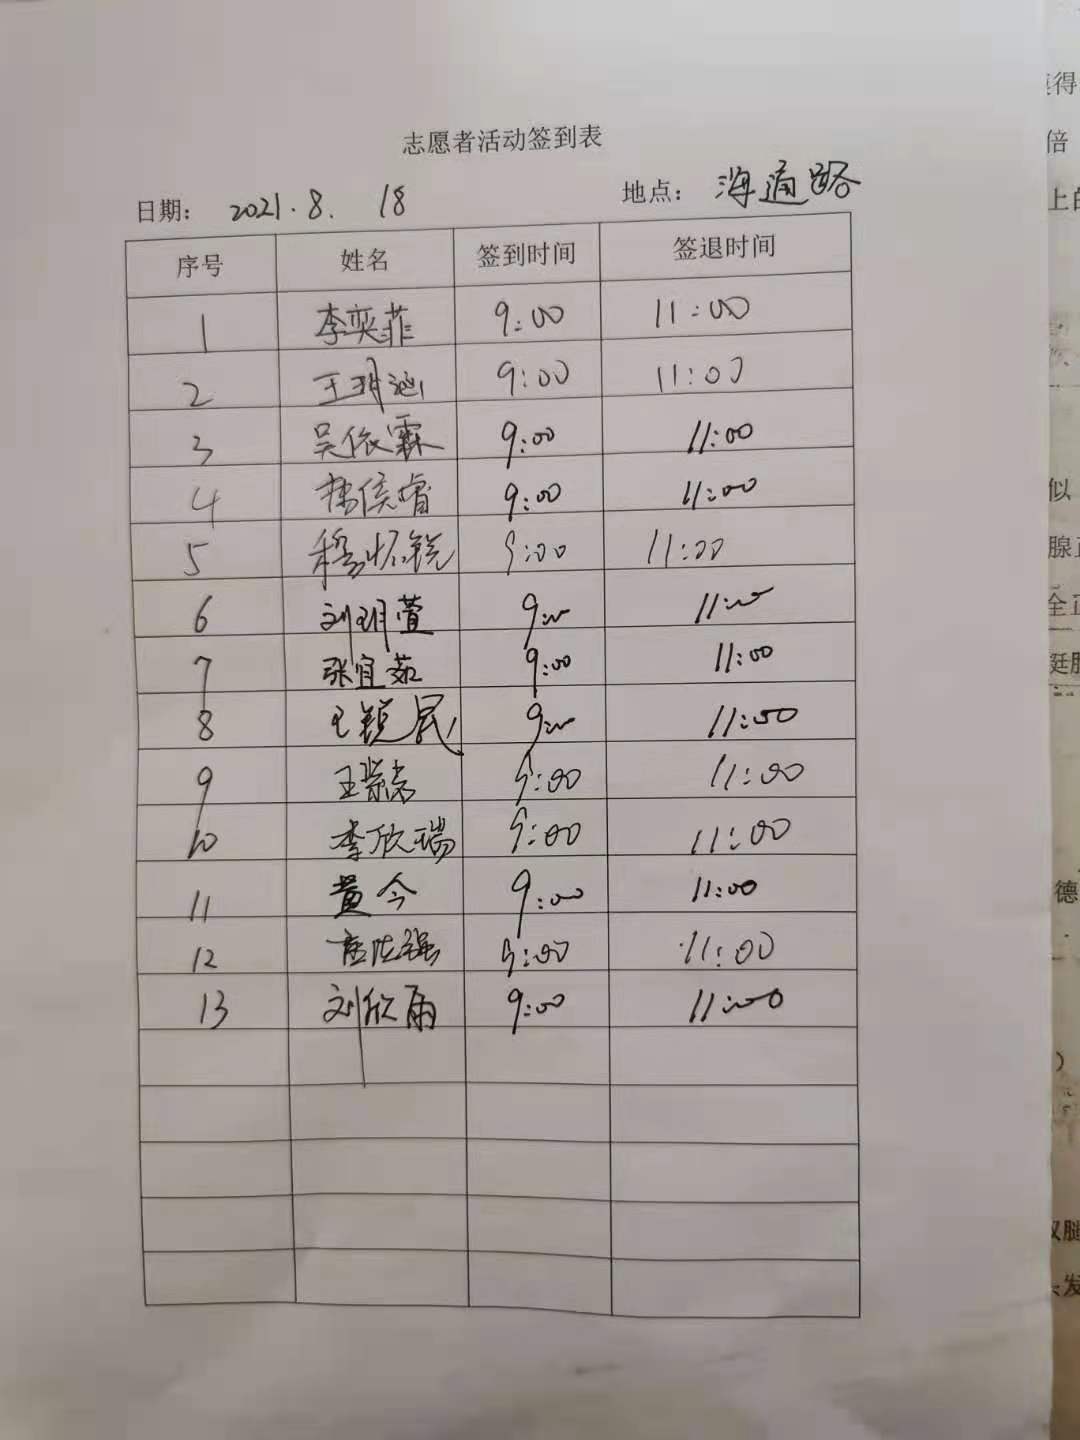 志愿者活动签到表
日期： 2021.8. 18 地点： 海通路
序号 姓名 签到时间 签退时间
1 李奕菲 9:00 11:00
2 王玥涵 9:00 11:00
3 吴依霖 9:00 11:00
4 9:00 11:00
5 9:00 11:00
6 刘玥萱 9:00 11:00
7 张宜茹 9:00 11:00
8 王锐民 9:00 11:00
9 9:00 11:00
10 李欣瑞 9:00 11:00
11 黄今 9:00 11:00
12 9:00 11:00
13 刘欣雨 9:00 11:00
得
倍
上的
似
腺正
全正
德
)
双腿
头发